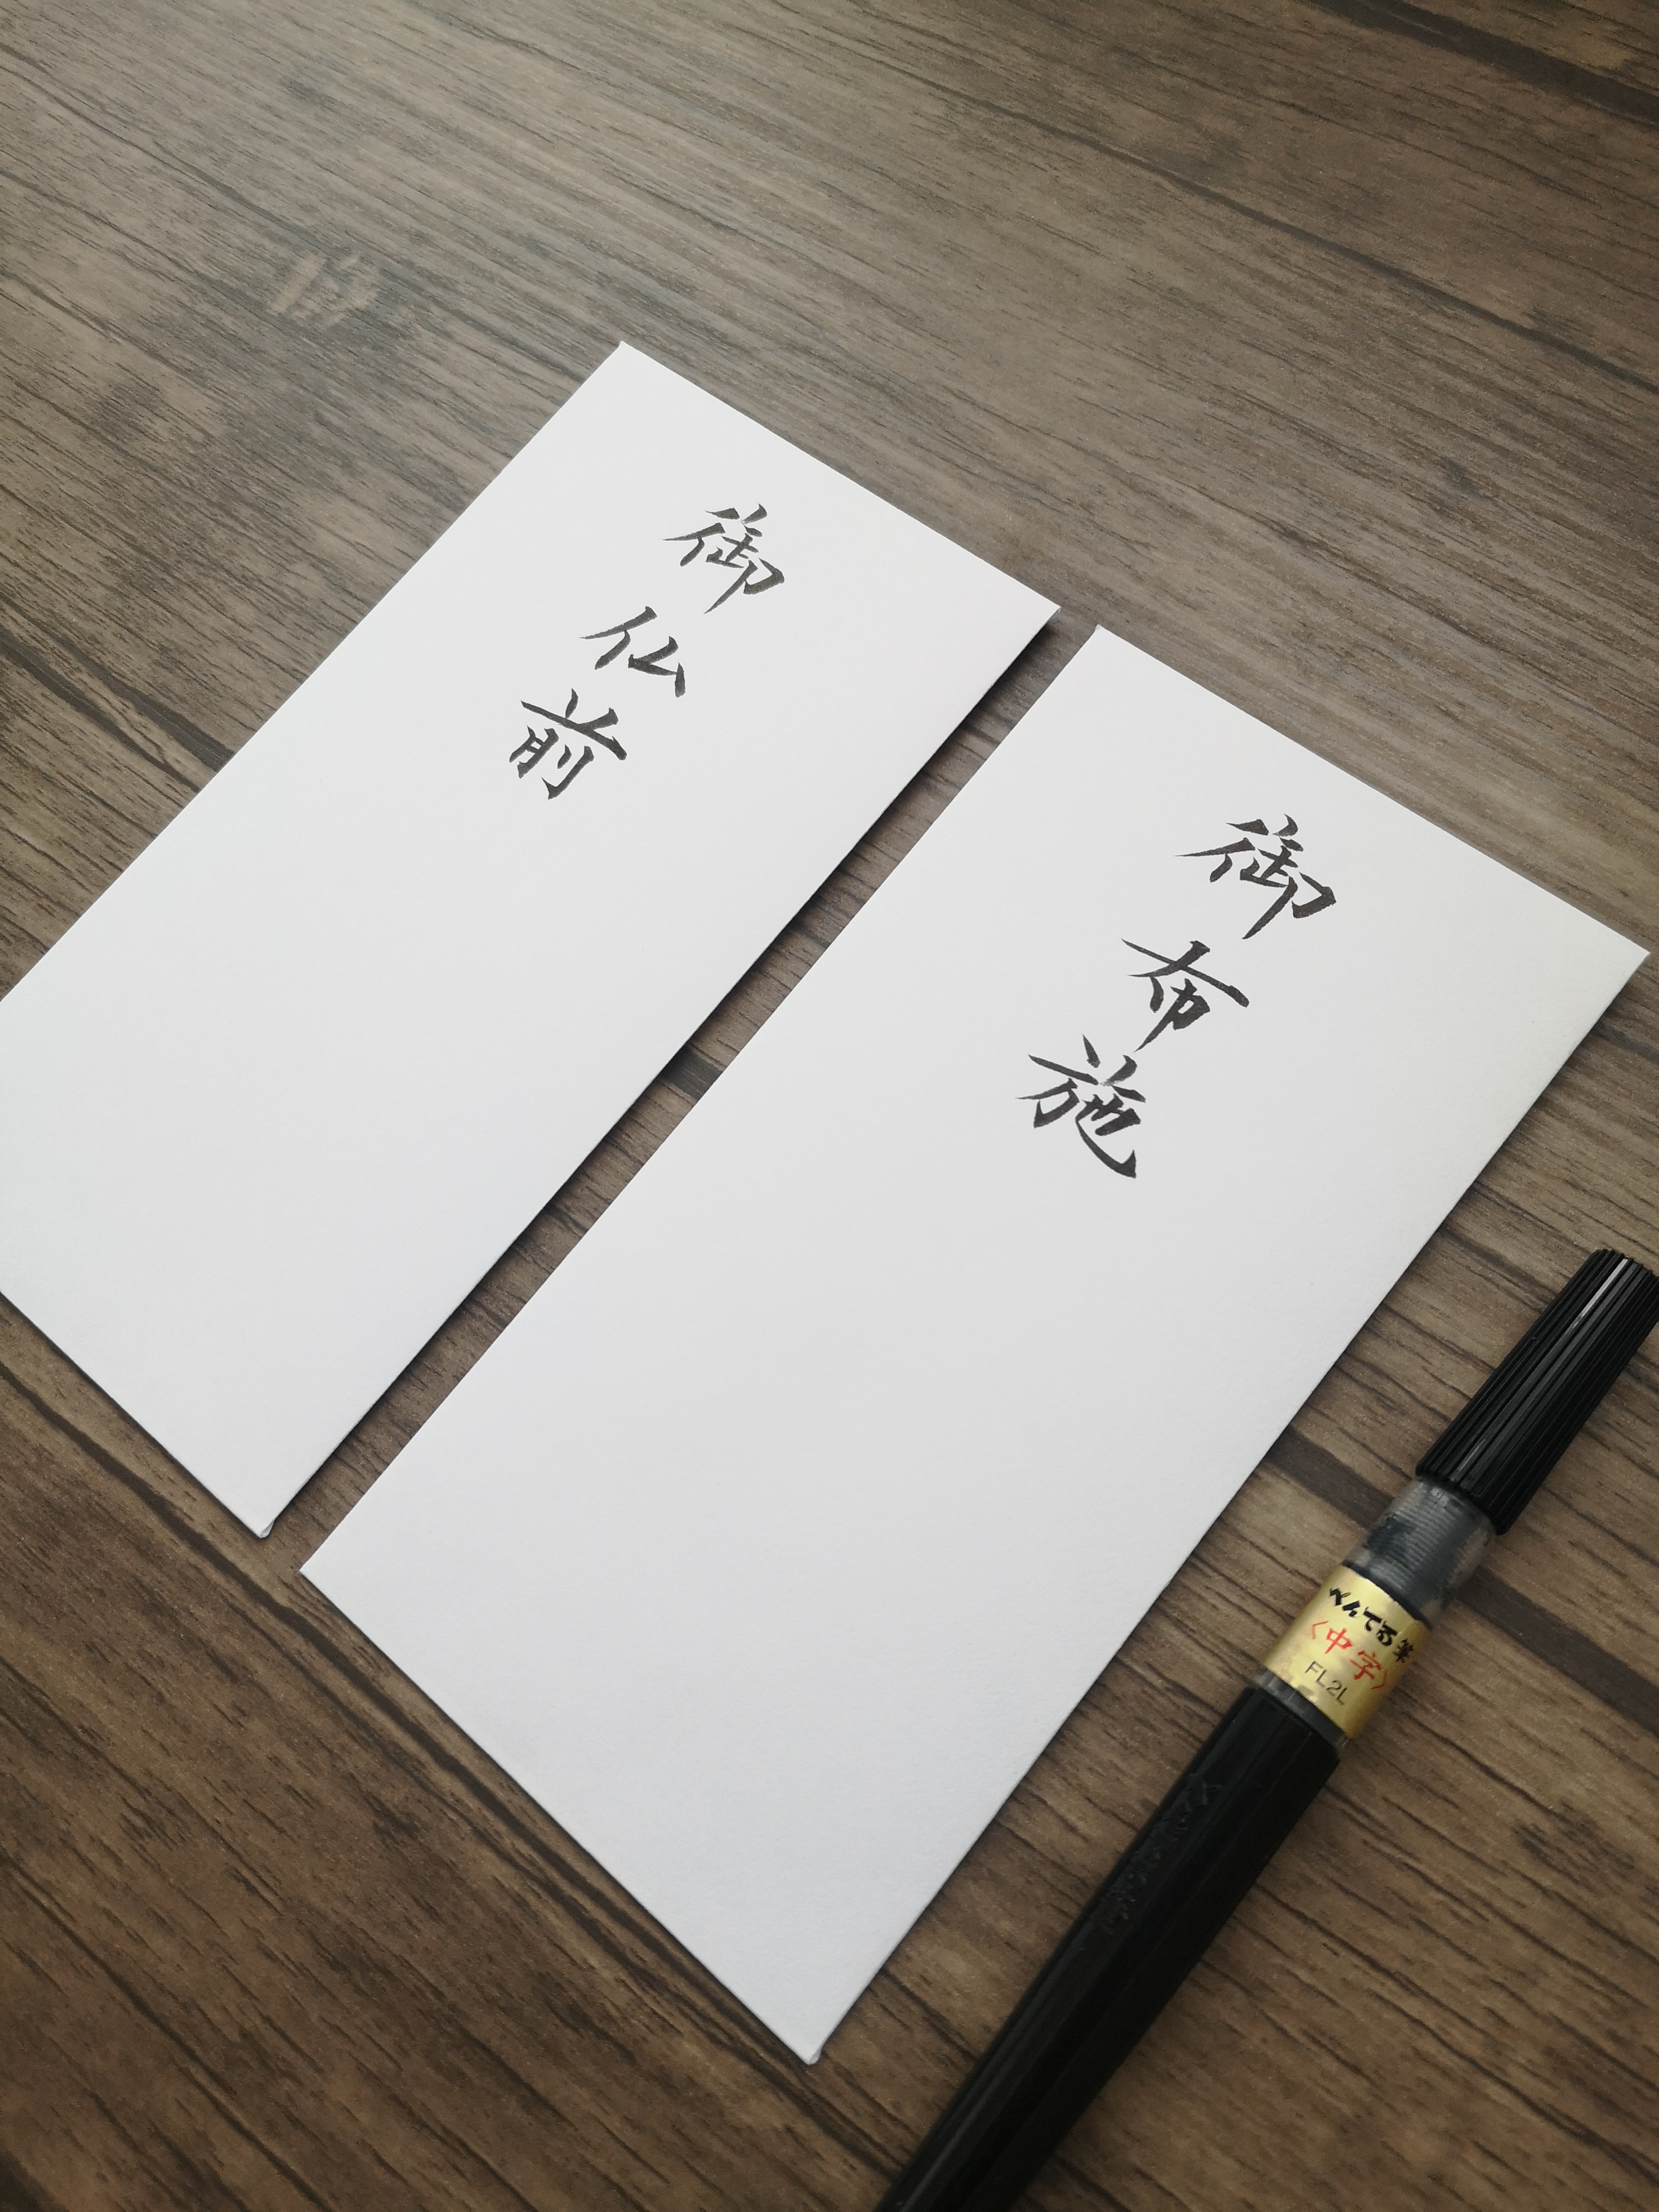 御仏前
御布施
ぺんてる筆
〈中字〉
FL2L